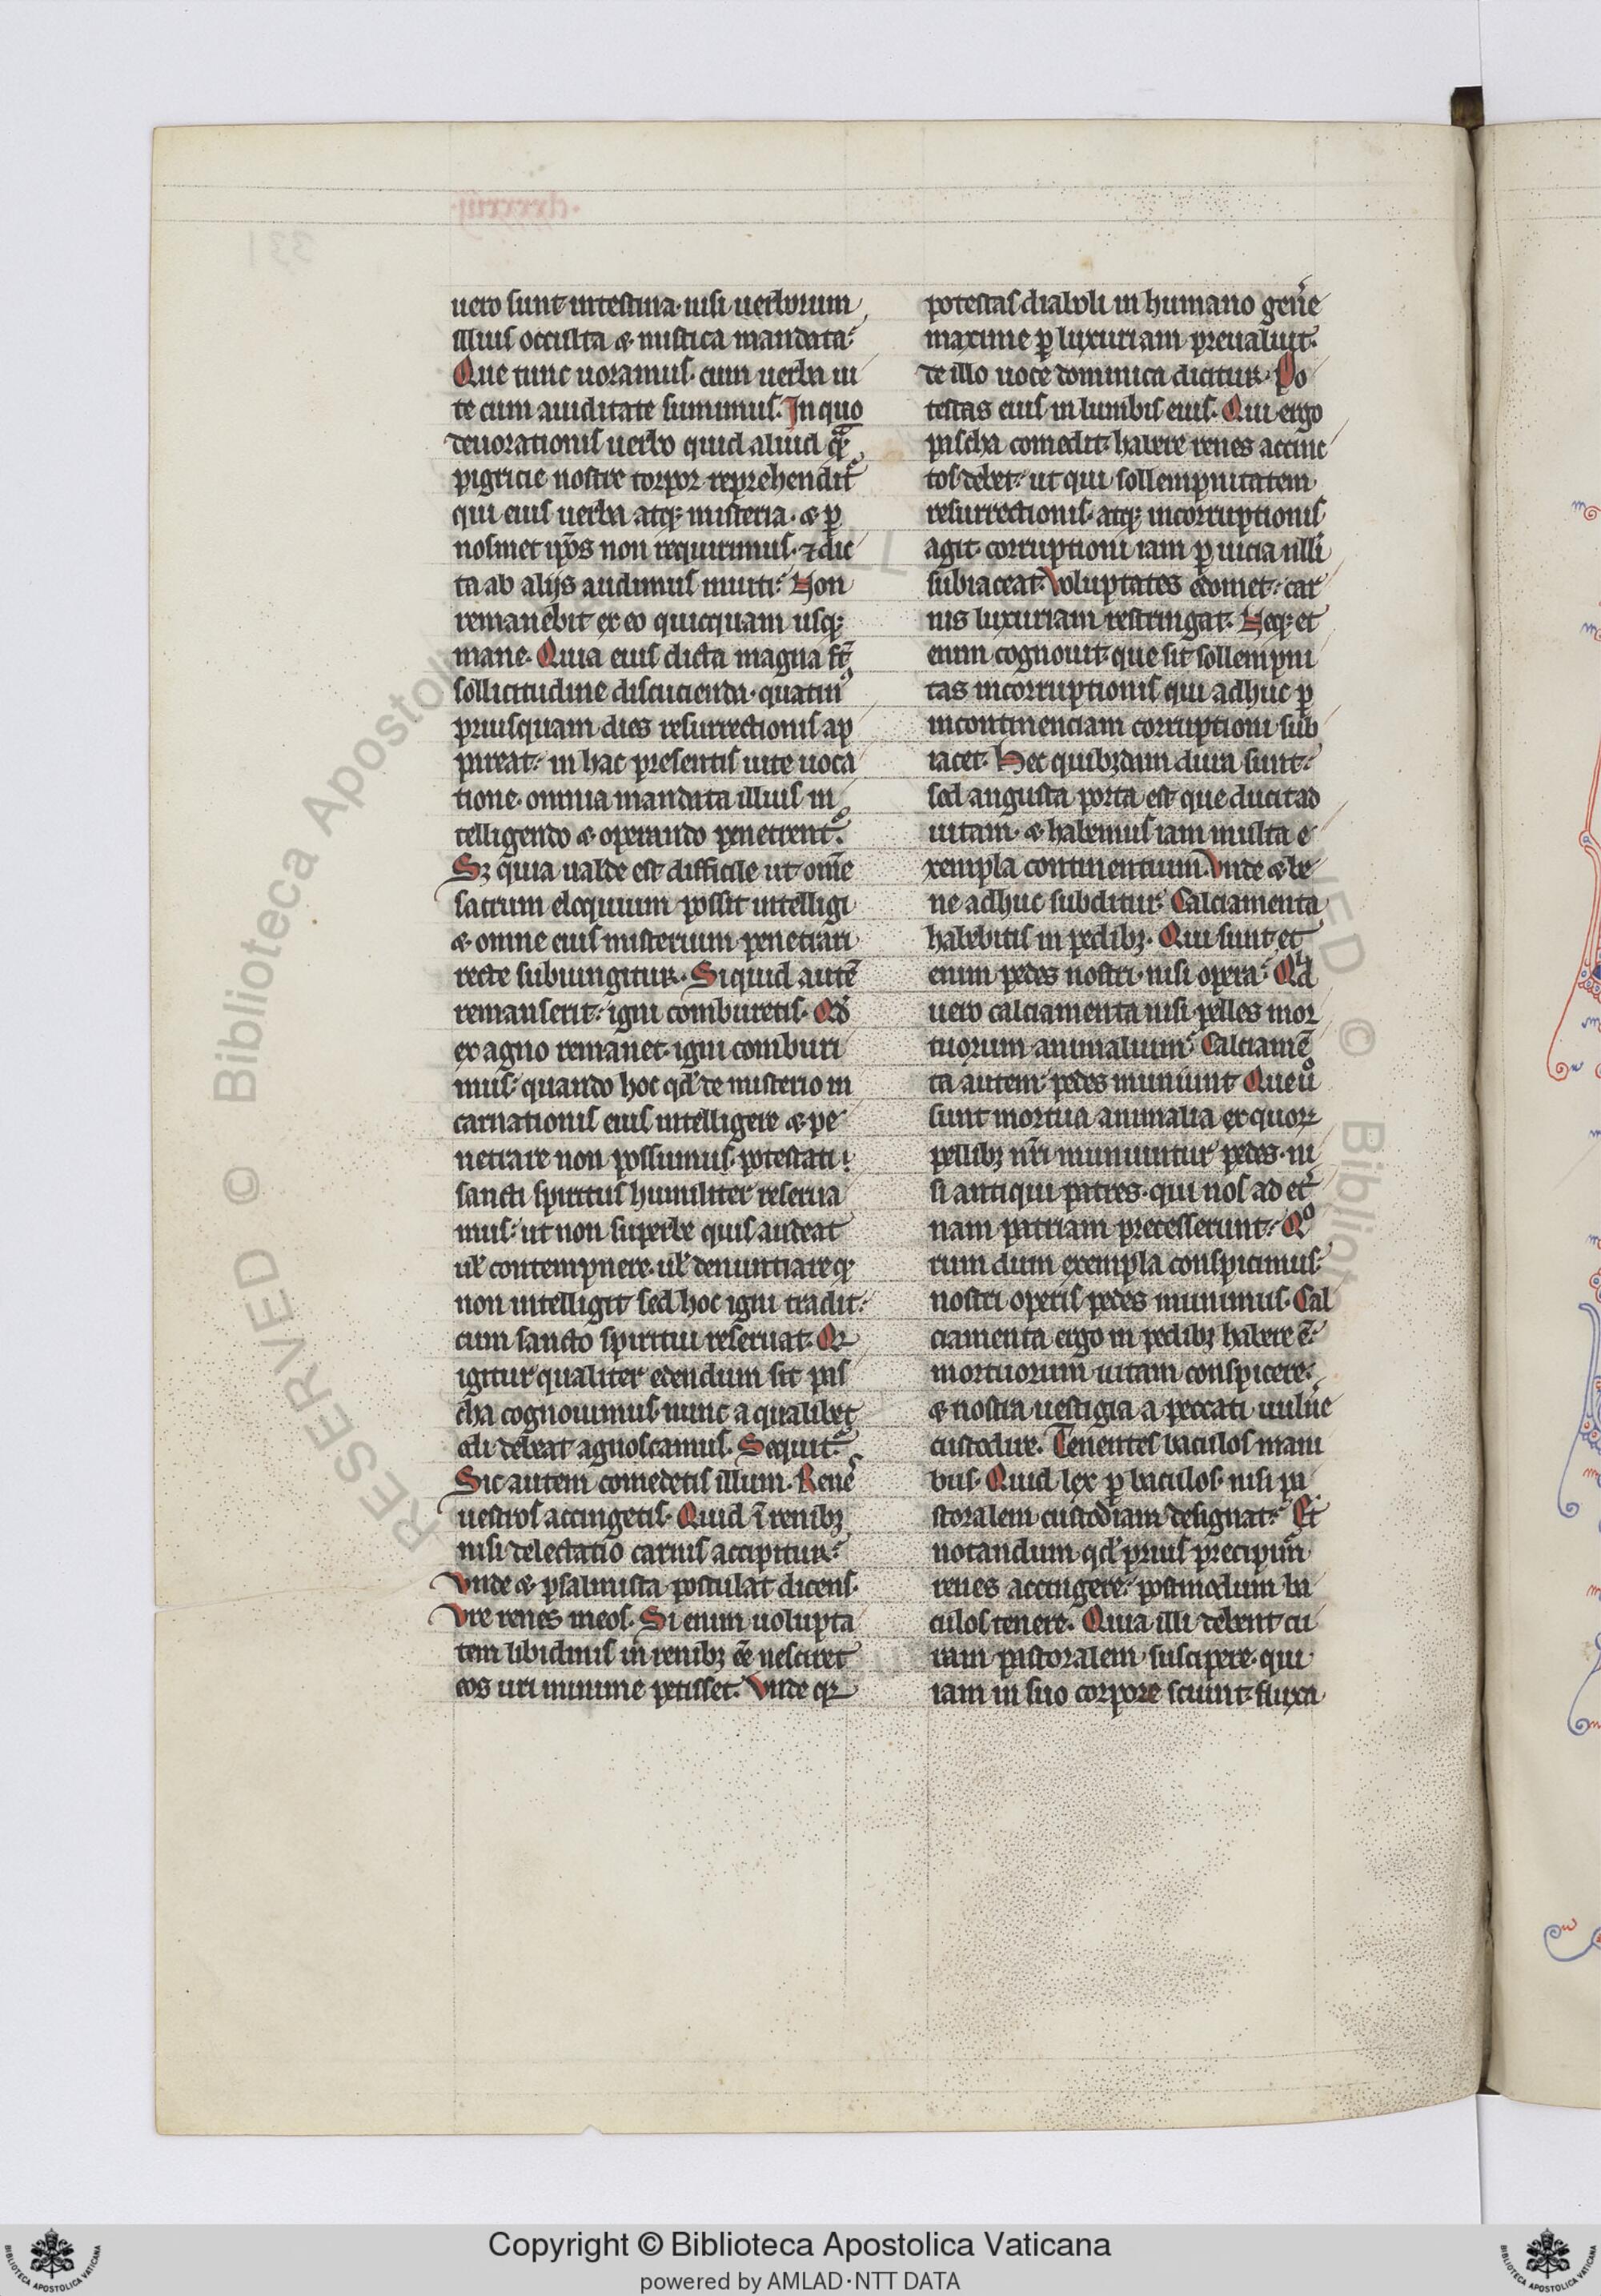 uero sunt intestina· nisi uerborum
illius occulta & mistica mandata·
Que tunc uoramus· cum uerba ui
te cum auiditate sumimus· In quo
deuorationis uerbo quid aliud qͣ
pigricie nostre torpor reprehendit᷑
qui eius uerba atq; misteria· & ꝑ
nosmet ip̅s non requirimus· ⁊ dic
ta ab alijs audimus inuiti· Non
remanebit ex eo quicquam usq;
mane· Quia eius dicta magna st̅
sollicitudine discucienda· quatinꝰ
priusquam dies resurrectionis ap
pareat· in hac presentis uite uoca
tione· omnia mandata illius in
telligendo & operando penetrent᷑·
Sꝫ quia ualde est difficile ut om̅e
sacrum eloquium possit intelligi
& omne eius misterium penetrari
recte subiungitur· Si quid aute̅
remanserit· igni comburetis· Qď
ex agno remanet· igni comburi
mus· quando hoc qď de misterio in
carnationis eius intelligere & pe
netrare non possumus· potestati
sancti spiritus humiliter reserua
mus· ut non superbe quis audeat
uł contempnere· uł denuntiare qͥ
non intelligit sed hoc igni tradit·
cum sancto spiritui reseruat· Qꝛ
igitur qualiter edendum sit pas
cha cognouimus· nunc a qualibet
edi debeat agnoscamus· Sequit᷑·
Sic autem comedetis illum· Renes
uestros accingetis· Quid i̅ renibꝫ
nisi delectatio carnis accipitur·
Vnde & psalmista postulat dicens·
Vre renes meos· Si enim uolupta
tem libidinis in renibꝫ ee̅ nesciret
eos uri minime petisset· Vnde qꝛ
potestas diaboli in humano gen̅e
maxime ꝑ luxuriam preualuit·
de illo uoce dominica dicitur· Po
testas eius in lumbis eius· Qui ergo
pascha comedit· habere renes accinc
tos debet· ut qui sollempnitatem
resurrectionis· atq; incorruptionis
agit· corruptioni iam ꝑ uicia nulli
subiaceat· Voluptates edomet· car
nis luxuriam restringat· Neq; et
enim cognouit· que sit sollempni
tas incorruptionis qui adhuc ꝑ
incontinenciam corruptioni sub
iacet· Hec quibꝫdam dura sunt·
sed angusta porta est que ducit ad
uitam· & habemus iam multa e
xempla continentium· Vnde & be
ne adhuc subditur· Calciamenta
habebitis in pedibꝫ· Qui sunt et
enim pedes nostri· nisi opera· Qd
uero calciamenta nisi pelles mor
tuorum animalium· Calciame̅
ta autem pedes muniunt Que uͦ
sunt mortua animalia ex quoꝝ
pellibꝫ nr̅i muniuntur pedes· ni
si antiqui patres· qui nos ad et᷑
nam patriam precesserunt· Qͦ
rum dum exempla conspicimus·
nostri operis pedes munimus· Cal
ciamenta ergo in pedibꝫ habere e̅·
mortuorum uitam conspicere·
& nostra uestigia a peccati uuln̅e
custodire· Tenentes baculos mani
bus· Quid lex ꝑ baculos· nisi pa
storalem custodiam designat· Et
notandum qď prius precipim̅
renes accingere· postmodum ba
culos tenere· Quia illi debent cu
ram pastoralem suscipere· qui
iam in suo corpore sciunt fluxa
RESERVED © Biblioteca Apostolica
Copyright © Biblioteca Apostolica Vaticana
powered by AMLAD·NTT DATA